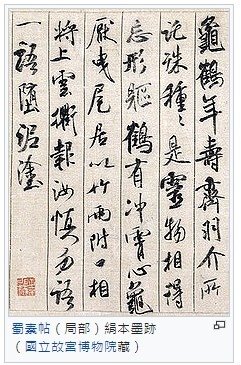 龜鶴年壽齊羽介所
託殊種種是靈物相得
忘形軀鶴有沖霄心龜
厭曳尾居以竹兩附口相
將上雲衢報汝慎勿語
一語墮泥塗
蜀素帖（局部）絹本墨跡
（國立故宮博物院藏）